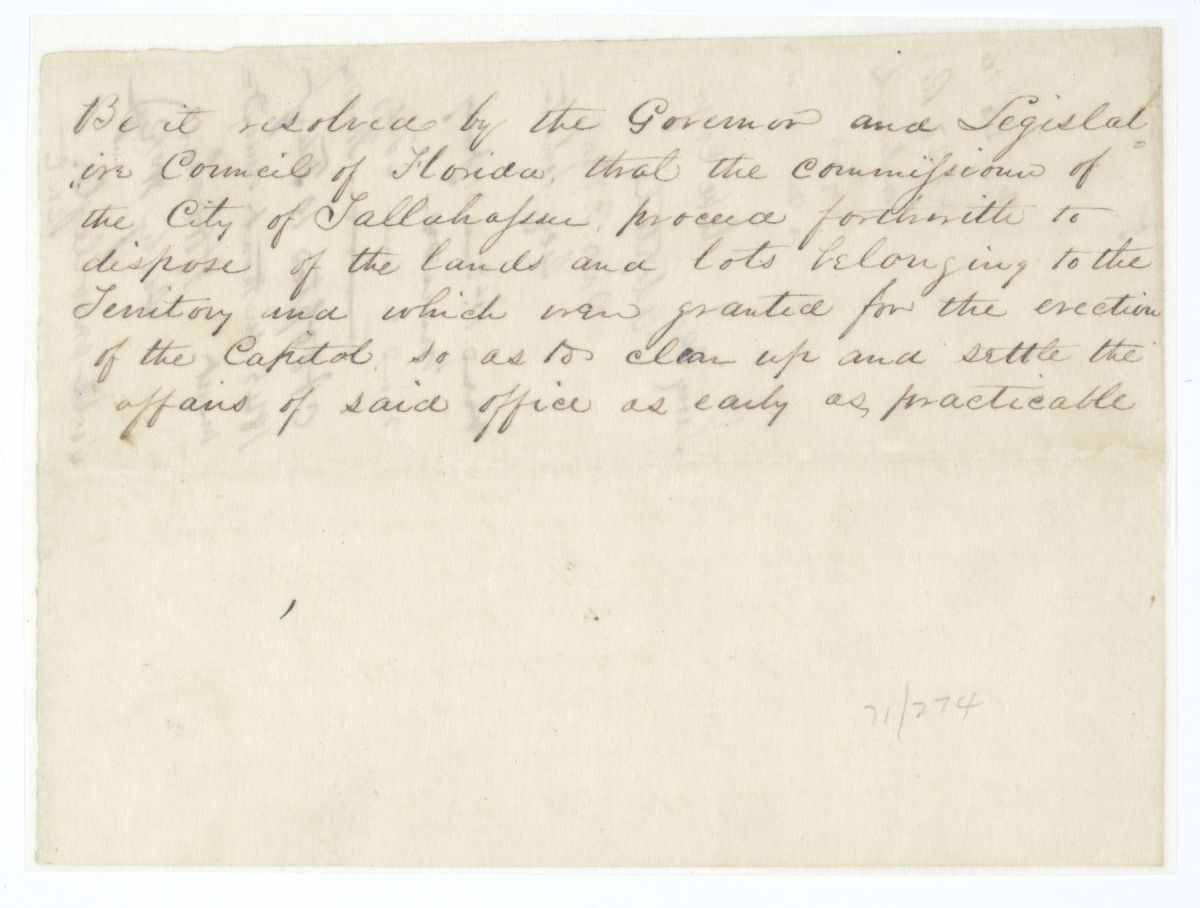 Be it resolved by the Governor and Legislat=
"ive Council of Florida, that the commissioner of
the City of Tallahassee, proceed forthwith to
dispose of the lands and lots belonging to the
Territory and which were granted for the erection
of the Capitol, so as to clear up and settle the
affairs of said office as early as practicable
71/274